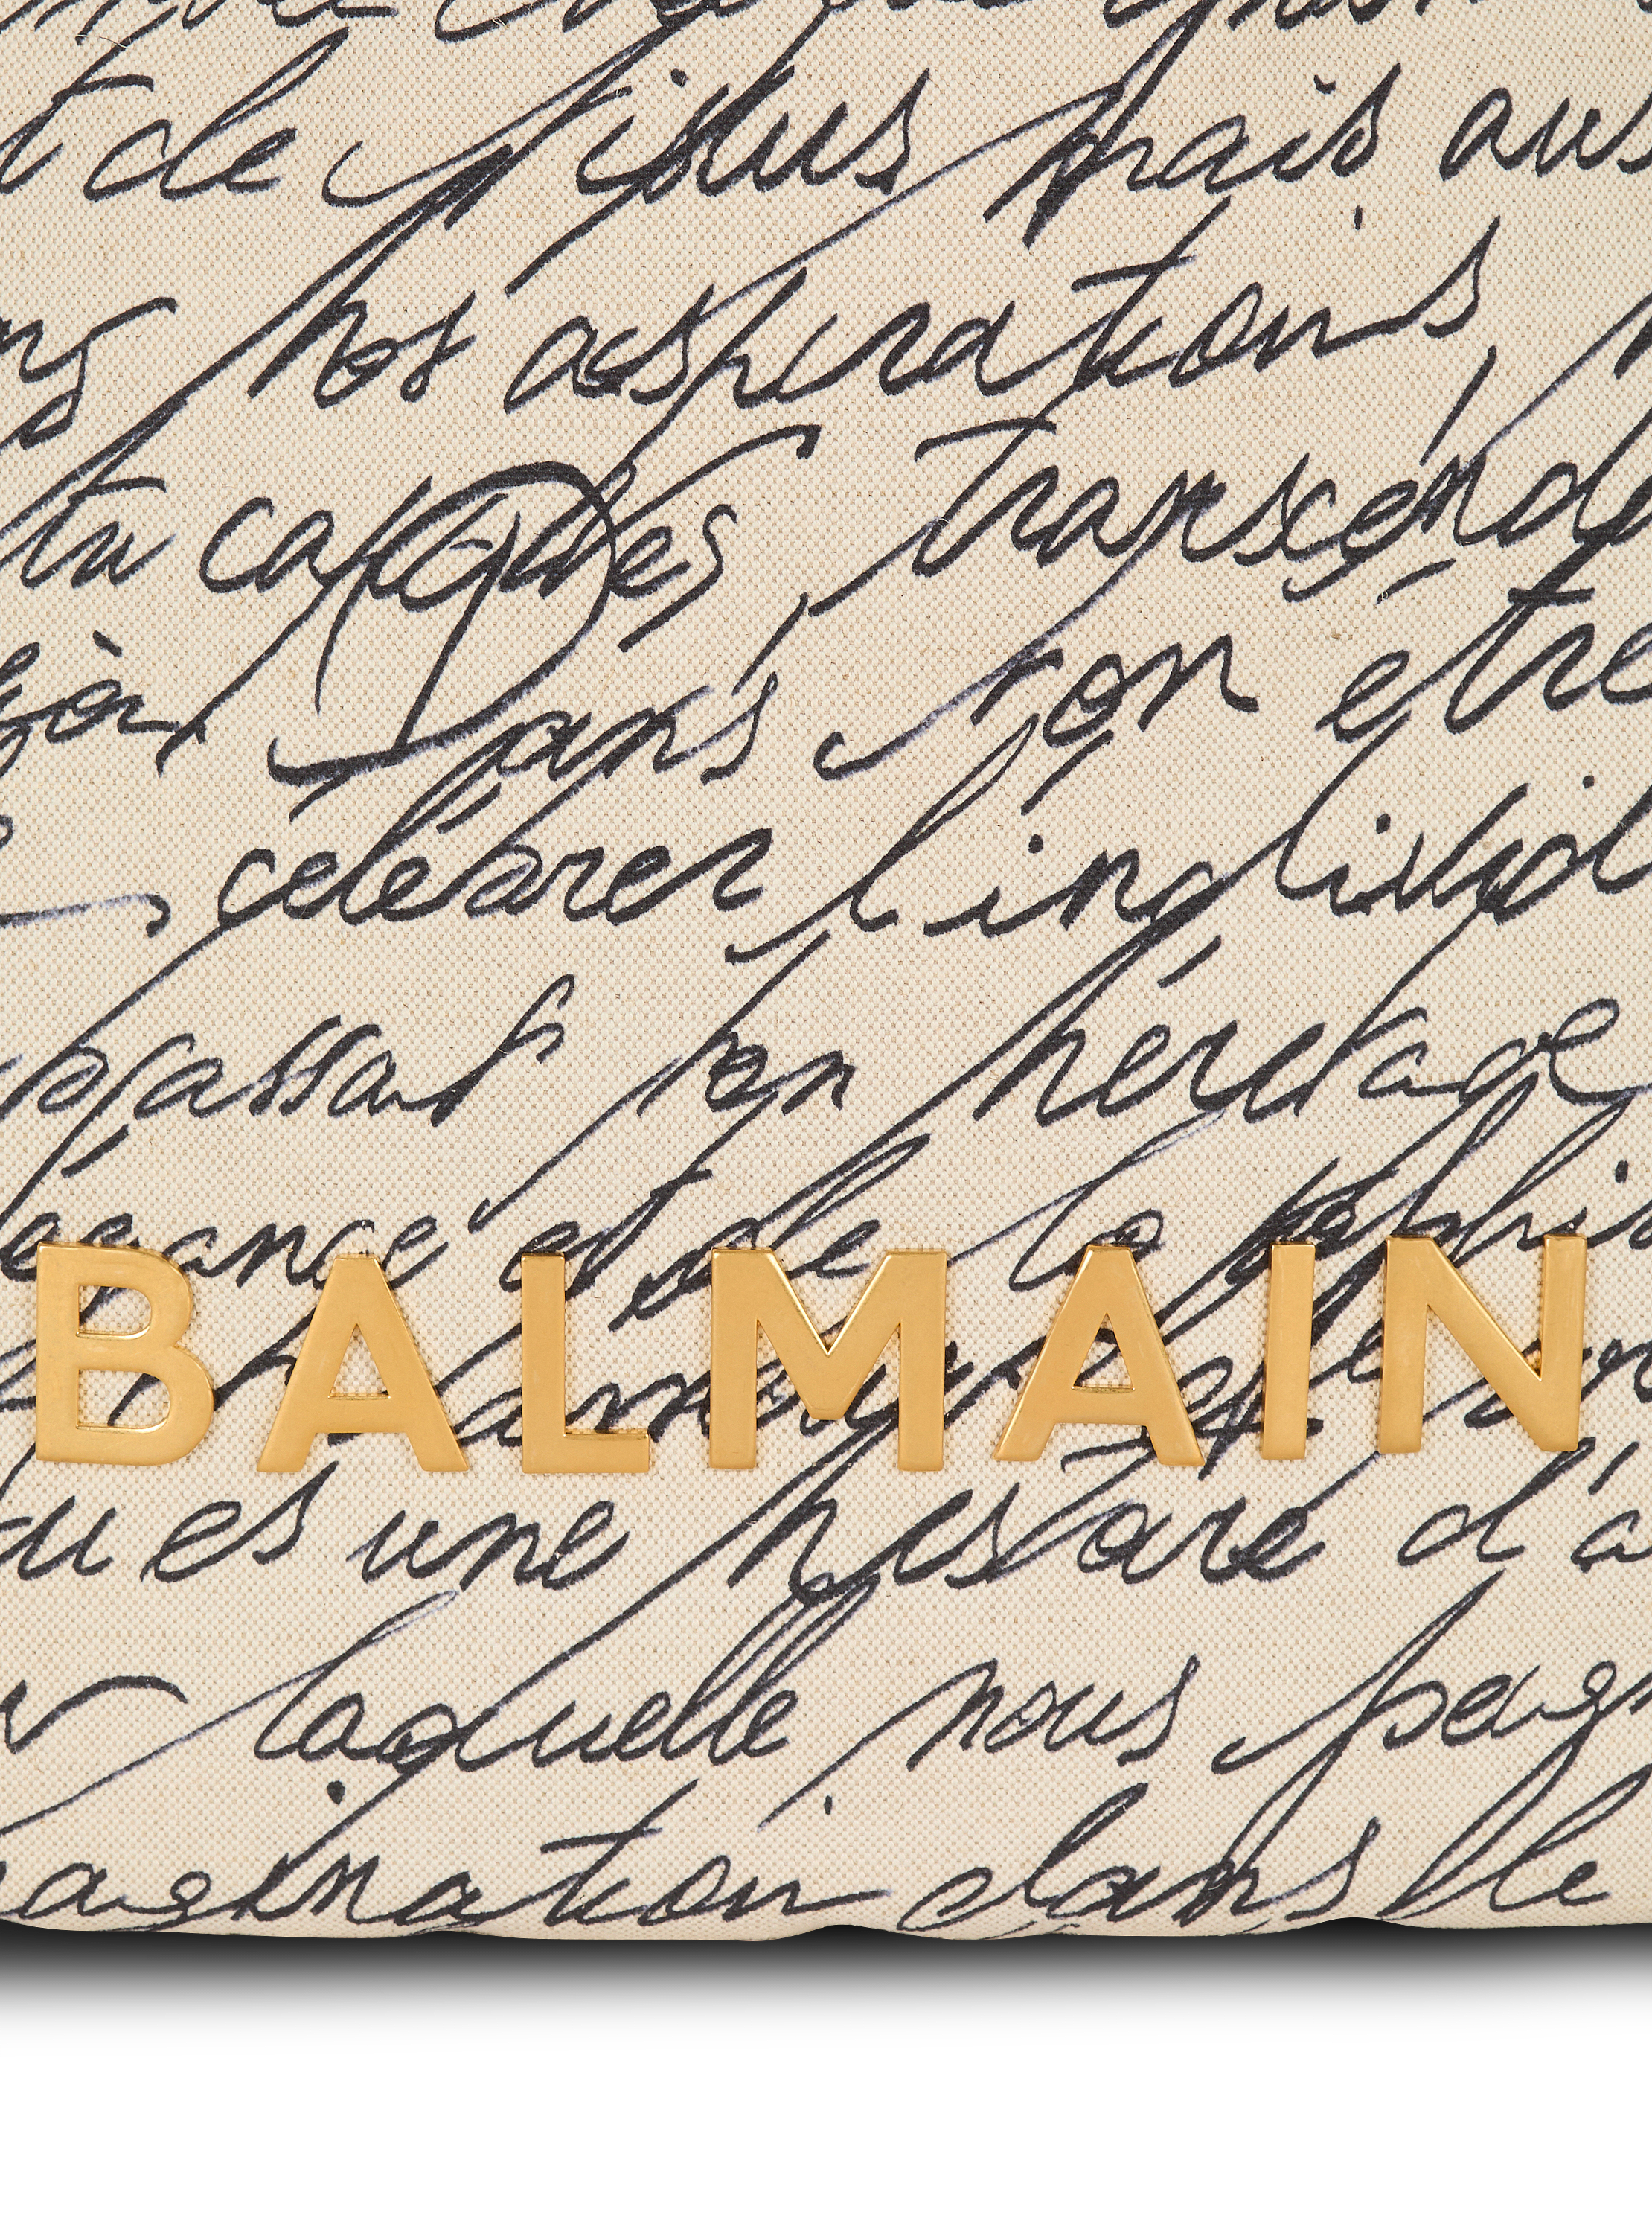 t de tissus mais aus
nos aspirations,
tu captures, transcende
dans ton être
célébrer l'individ
passant ton héritage
égance et de la
BALMAIN
amour
tu es une histoire d'a
laquelle nous
agination dans le